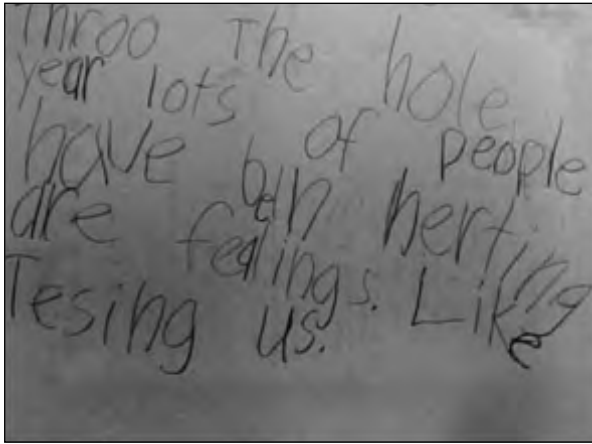 Throo The hole
year lots of people
have ben herting
are fealings. Like
Tesing us.